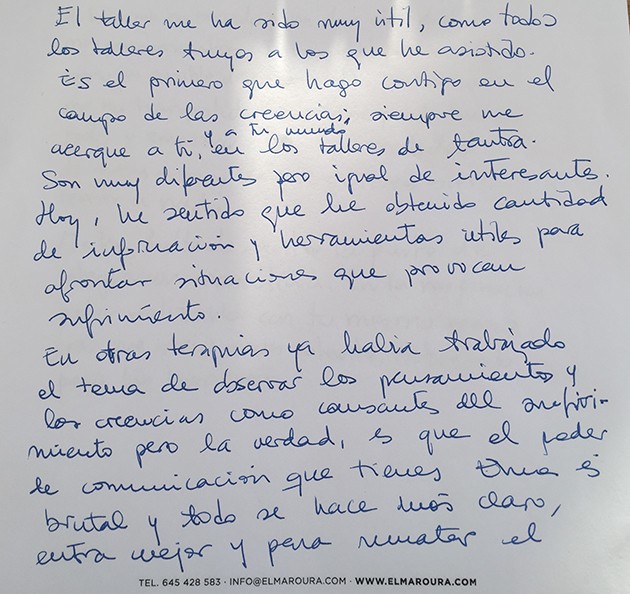 El taller me ha sido muy útil, como todos
los talleres tuyos a los que he asistido.
Es el primero que hago contigo en el
campo de las creencias; siempre me
y a tu mundo
acerque a ti, en los talleres de tantra.
Son muy diferentes pero igual de interesantes.
Hoy, he sentido que he obtenido cantidad
de información y herramientas útiles para
afrontar situaciones que provocan
sufrimiento.
En otras terapias ya había trabajado
el tema de observar los pensamientos y
las creencias como causantes del
miento pero la verdad, es que el poder
de comunicación que tienes es
brutal y todo se hace más claro,
entra mejor y para rematar el
TEL. 645 428 583 · INFO@ELMAROURA.COM · WWW.ELMAROURA.COM